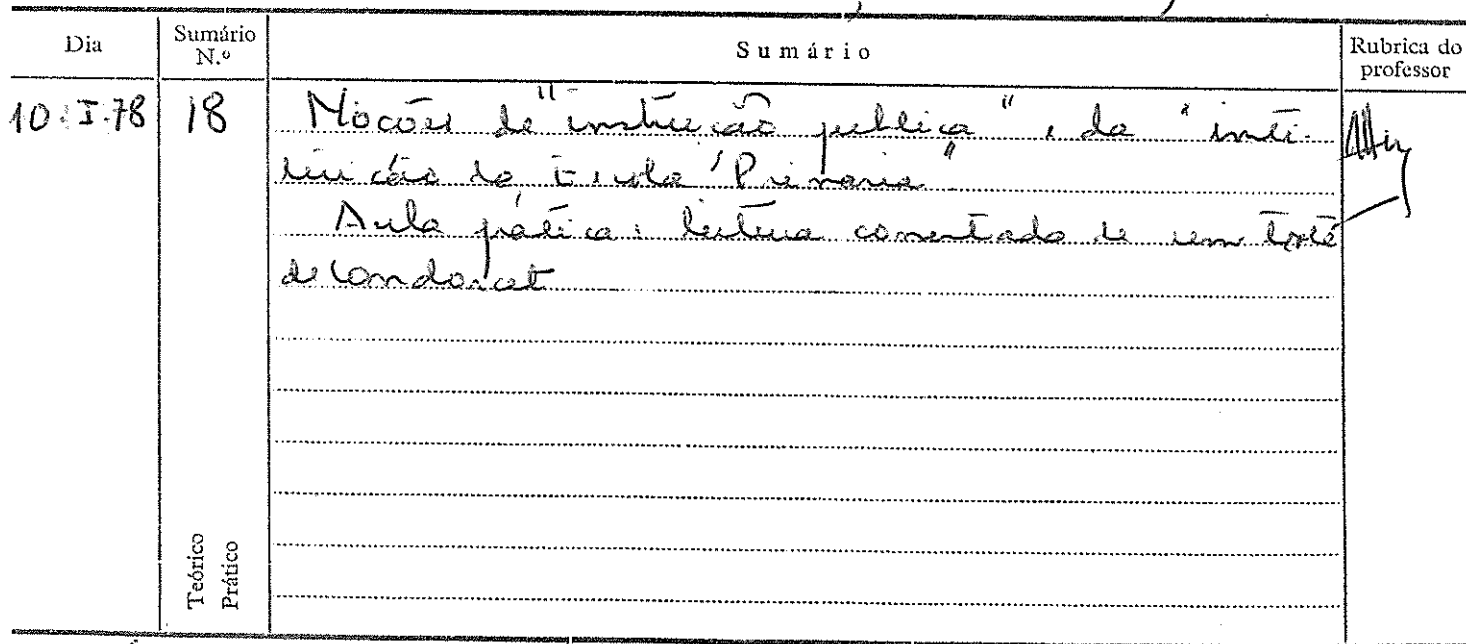 Dia
Sumário N.º
Sumário
Rubrica do professor
10.I.78
18
Noções de "instrução publica", da "insti-
tuição da Escola Primaria"
Aula prática: leitura comentada de um texto
de Condorcet
Teórico
Prático